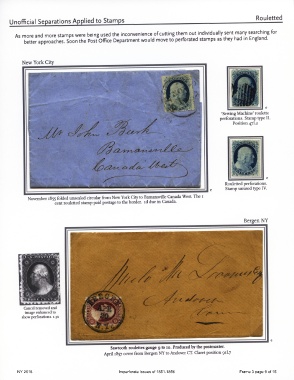 Unofficial Separations Applied to Stamps
Rouletted
As more and more stamps were being used the inconvenience of cutting them out individually sent many searching for
better approaches. Soon the Post Office Department would move to perforated stamps as they had in England.
New York City
"Sewing Machine" roulette
perforations.
Stamp type II.
Mr John Bush
Bamansville
Canada West
Rouletted perforations.
November 1855 folded unsealed circular from New York City to Bamansville Canada West. The 1
cent rouletted stamp paid postage to the border. 1d due in Canada.
Bergen NY
Andover
Conn
Cancel removed and
image enhanced to
show perforations.
Sawtooth roulette gauge 9 to 10. Produced by the postmaster.
April 1857 cover from Bergen NY to Andover CT. Claret position
NY 2016
Imperforate Issues of 1851-1856